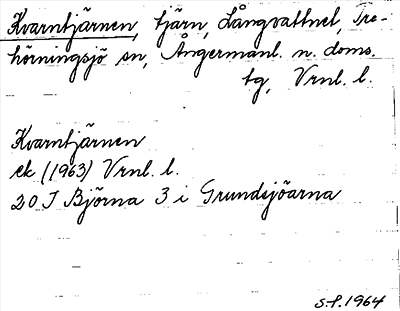 Kvarntjärnen, tjärn, Långvattnet, Tre-
hörningsjö sn, Ångermanl. n. doms.
tg, Vrnl. l.
Kvarntjärnen
ek (1963) Vrnl. l.
20 I Björna 3 i Grundsjöarna
S.P. 1964